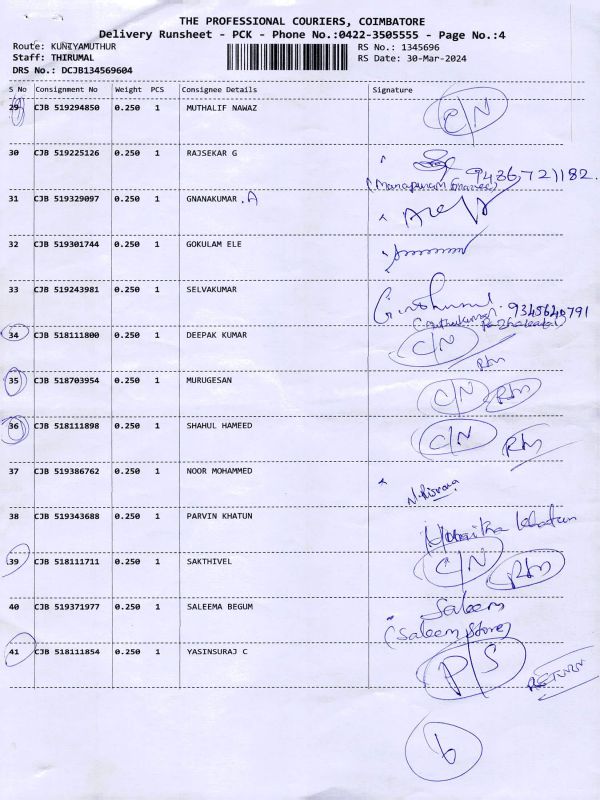 THE PROFESSIONAL COURIERS, COIMBATORE
Delivery Runsheet - PCK - Phone No.:0422-3505555 - Page No.:4
Route: KUNIYAMUTHUR
RS No.: 1345696
Staff: THIRUMAL
RS Date: 30-Mar-2024
DRS No.: DCJB134569604
S No Consignment No Weight PCS Consignee Details Signature
29 CJB 519294850 0.250 1 MUTHALIF NAWAZ C/N
30 CJB 519225126 0.250 1 RAJSEKAR G
31 CJB 519329097 0.250 1 GNANAKUMAR .A
32 CJB 519301744 0.250 1 GOKULAM ELE
33 CJB 519243981 0.250 1 SELVAKUMAR
9345640791
34 CJB 518111800 0.250 1 DEEPAK KUMAR C/N
Rtn
35 CJB 518703954 0.250 1 MURUGESAN C/N Rtn
36 CJB 518111898 0.250 1 SHAHUL HAMEED C/N Rtn
37 CJB 519386762 0.250 1 NOOR MOHAMMED
38 CJB 519343688 0.250 1 PARVIN KHATUN Khatun
39 CJB 518111711 0.250 1 SAKTHIVEL C/N Rtn
40 CJB 519371977 0.250 1 SALEEMA BEGUM Saleem
(Saleem Store)
41 CJB 518111854 0.250 1 YASINSURAJ C P/S
RETURN
6